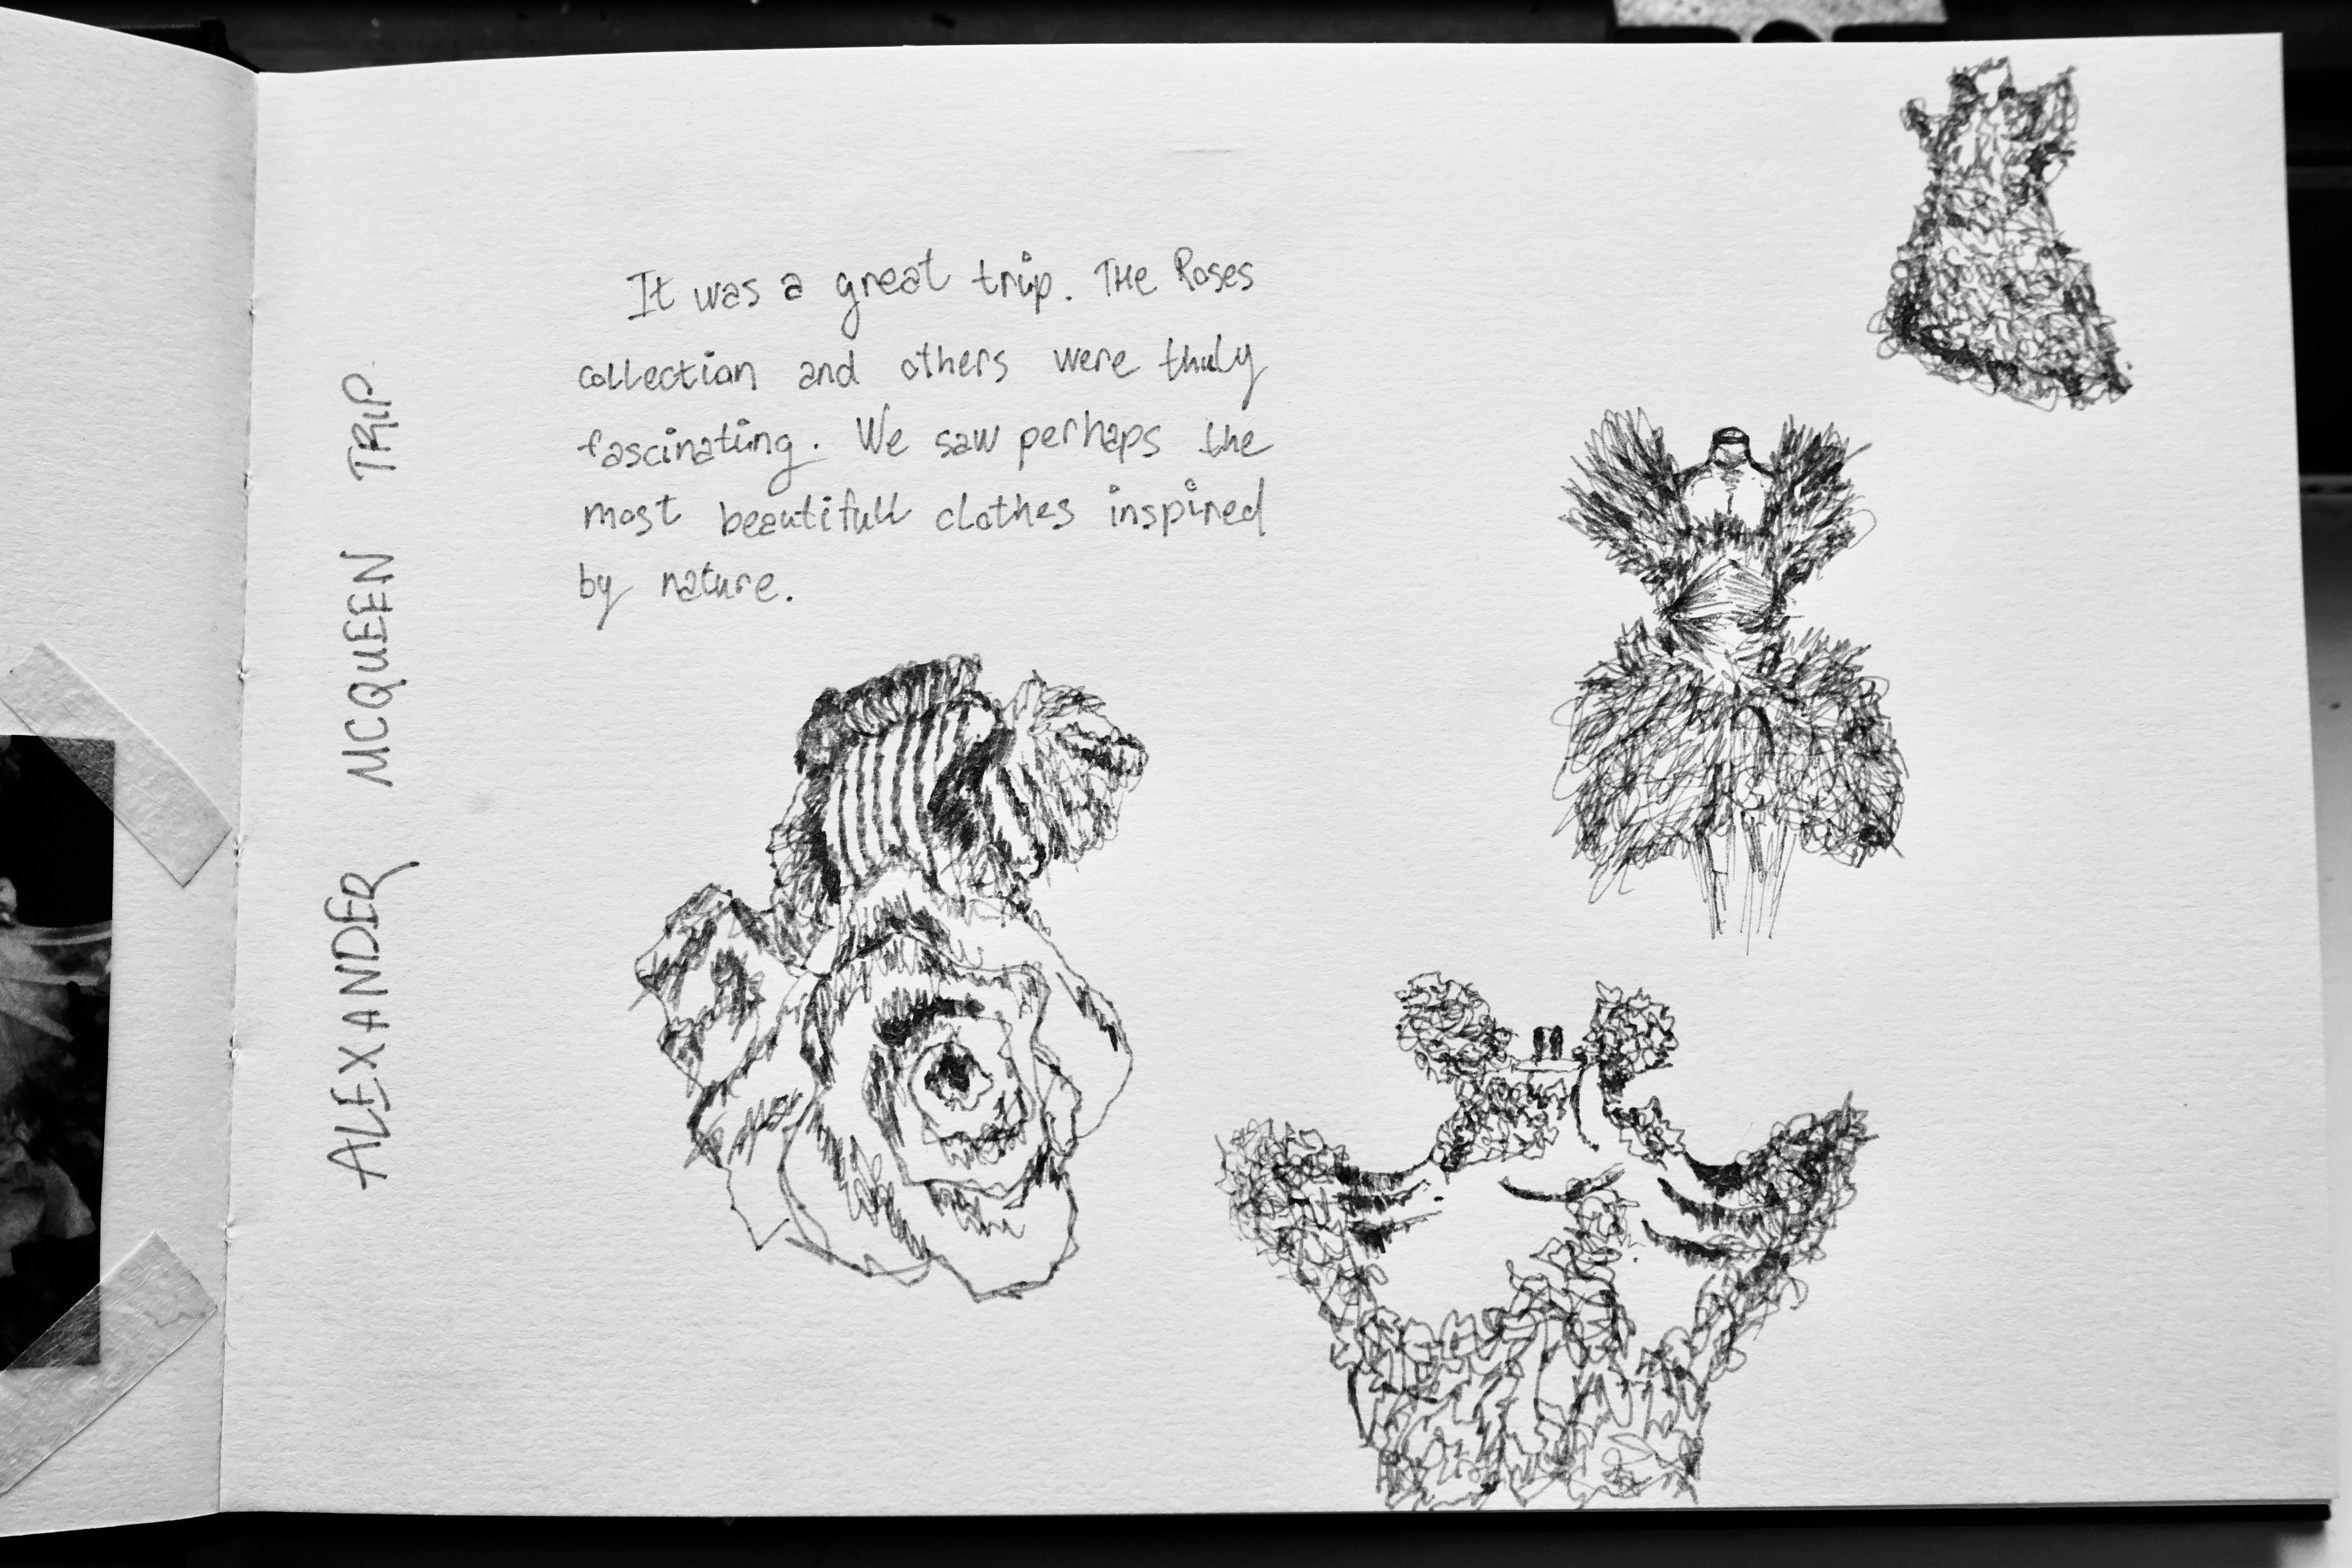 ALEXANDER MCQUEEN TRIP
It was a great trip. THe Roses
collection and others were thuly
fascinating. We saw perhaps the
most beautifull clothes inspired
by nature.